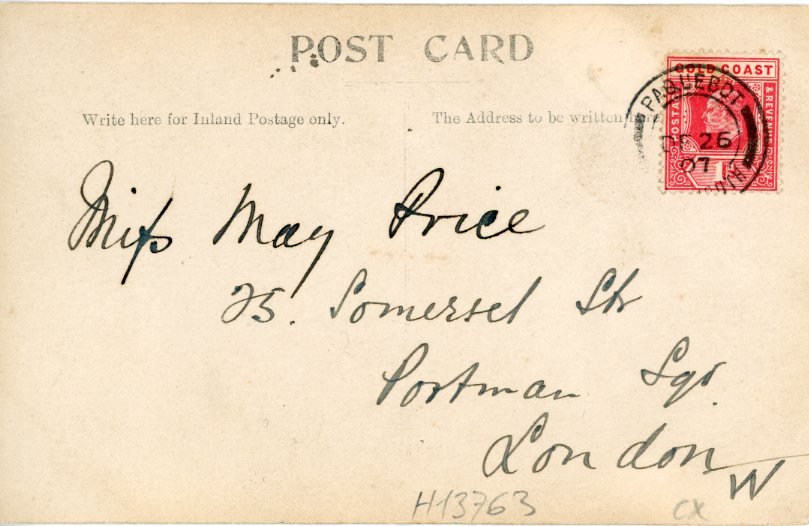 POST CARD
Write here for Inland Postage only.
The Address to be written here.
GOLD COAST
POSTAGE & REVENUE
PAQUEBOT
26
07
Miss May Price
25. Somerset Str
Portman Sqr.
London W
H13763
CX